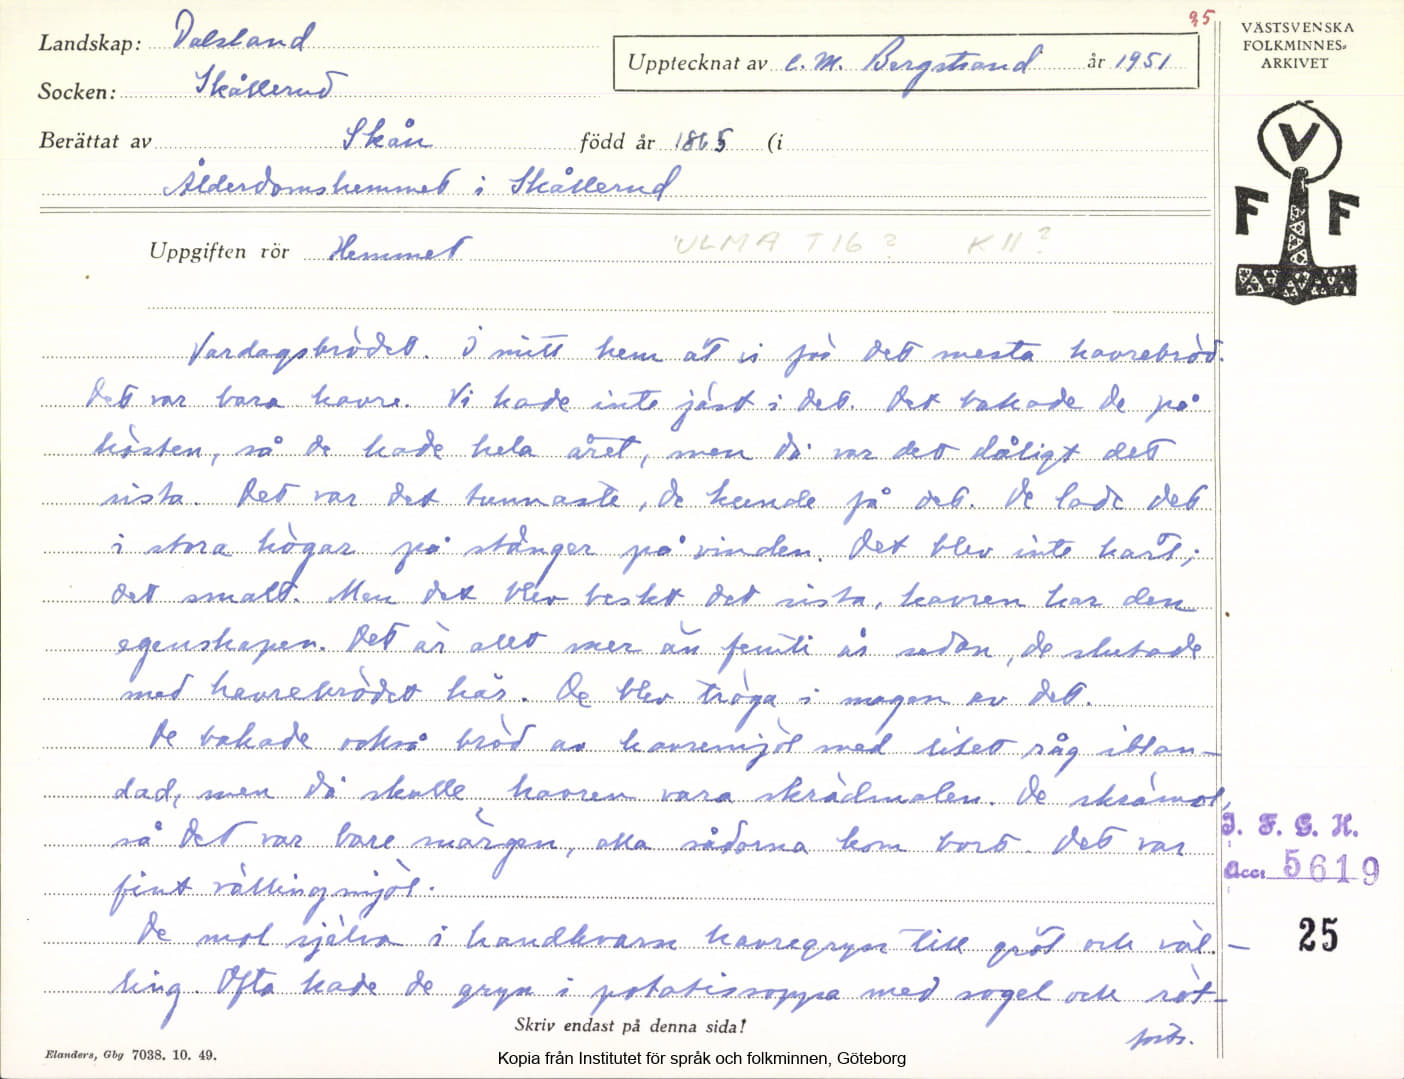 95
Landskap: Dalsland
Socken: Skållerud
Upptecknat av C. M. Bergstrand år 1951
Berättat av Skån född år 1865 (i
Ålderdomshemmet i Skållerud
VÄSTSVENSKA
FOLKMINNES-
ARKIVET
V
F F
Uppgiften rör Hemmet
ULMA T16? K11?
Vardagsbrödet. I mitt hem åt vi för det mesta havrebröd.
Det var bara havre. Vi hade inte jäst i det. Det bakade de på
hösten, så de hade hela året, men då var det dåligt det
sista. Det var det tunnaste, de kunde få det. De lade det
i stora högar på stänger på vinden. Det blev inte hårt;
det smalt. Men det blev beskt det sista, havren har den
egenskapen. Det är allt mer än femti år sedan, de slutade
med havrebrödet här. De blev tröga i magen av det.
De bakade också bröd av havremjöl med litet råg iblan-
dad, men då skulle havren vara skrädmalen. De skrämol,
så det var bare märgen, alla sådorna kom bort. Det var
fint vällingmjöl.
De mol själva i handkvarn havregryn till gröt och väl-
ling. Ofta hade de gryn i potatissoppa med sogel och röt-
forts.
Skriv endast på denna sida!
I. F. G. H.
Acc. 5619
25
Elanders, Gbg 7038. 10. 49.
Kopia från Institutet för språk och folkminnen, Göteborg